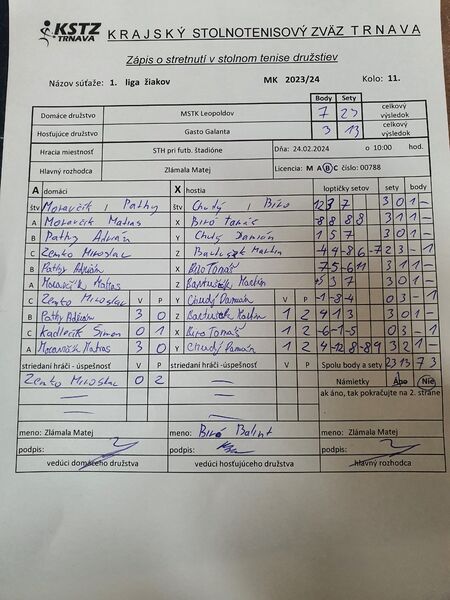 KSTZ TRNAVA
KRAJSKÝ STOLNOTENISOVÝ ZVÄZ TRNAVA
Zápis o stretnutí v stolnom tenise družstiev
Názov súťaže: 1. liga žiakov MK 2023/24 Kolo: 11.
Body Sety
Domáce družstvo MSTK Leopoldov 7 23 celkový výsledok
Hosťujúce družstvo Gasto Galanta 3 13 celkový výsledok
Hracia miestnosť STH pri futb. štadióne Dňa: 24.02.2024 o 10:00 hod.
Hlavný rozhodca Zlámala Matej Licencia: M A B C číslo: 00788
A domáci X hostia loptičky setov sety body
štv Moravčík, Pathy štv Chudý, Biro 12 3 7 3 0 1 -
A Moravčík Matias X Biró Tomáš 3 1 1 -
B Pathy Adrián Y Chudý Damián 1 5 7 3 0 1 -
C Zemko Miroslav Z Bartušek Martin -4 4 8 -6 -7 2 3 - 1
B Pathy Adrián X Biro Tomáš 7 5 -6 11 3 1 1 -
A Z 3 7 3 0 1 -
C Zemko Miroslav V P Y Chudý Damián V P -1 -8 -4 0 3 - 1
B Pathy Adrián 3 0 Z 1 2 3 1 -
C Kadlečík Šimon 0 1 X Biro Tomáš -6 -1 -5 0 3 - 1
A Moravčík Matias 3 0 Y Chudý Damián 1 2 4 -12 8 -8 9 3 2 1 -
striedaní hráči - úspešnosť V P striedaní hráči - úspešnosť V P Spolu body a sety 23 13 7 3
Zemko Miroslav 0 2 Námietky Áno Nie
ak áno, tak pokračujte na 2. strane
meno: Zlámala Matej meno: Biró Balint meno: Zlámala Matej
podpis: podpis: podpis:
vedúci domáceho družstva vedúci hosťujúceho družstva hlavný rozhodca